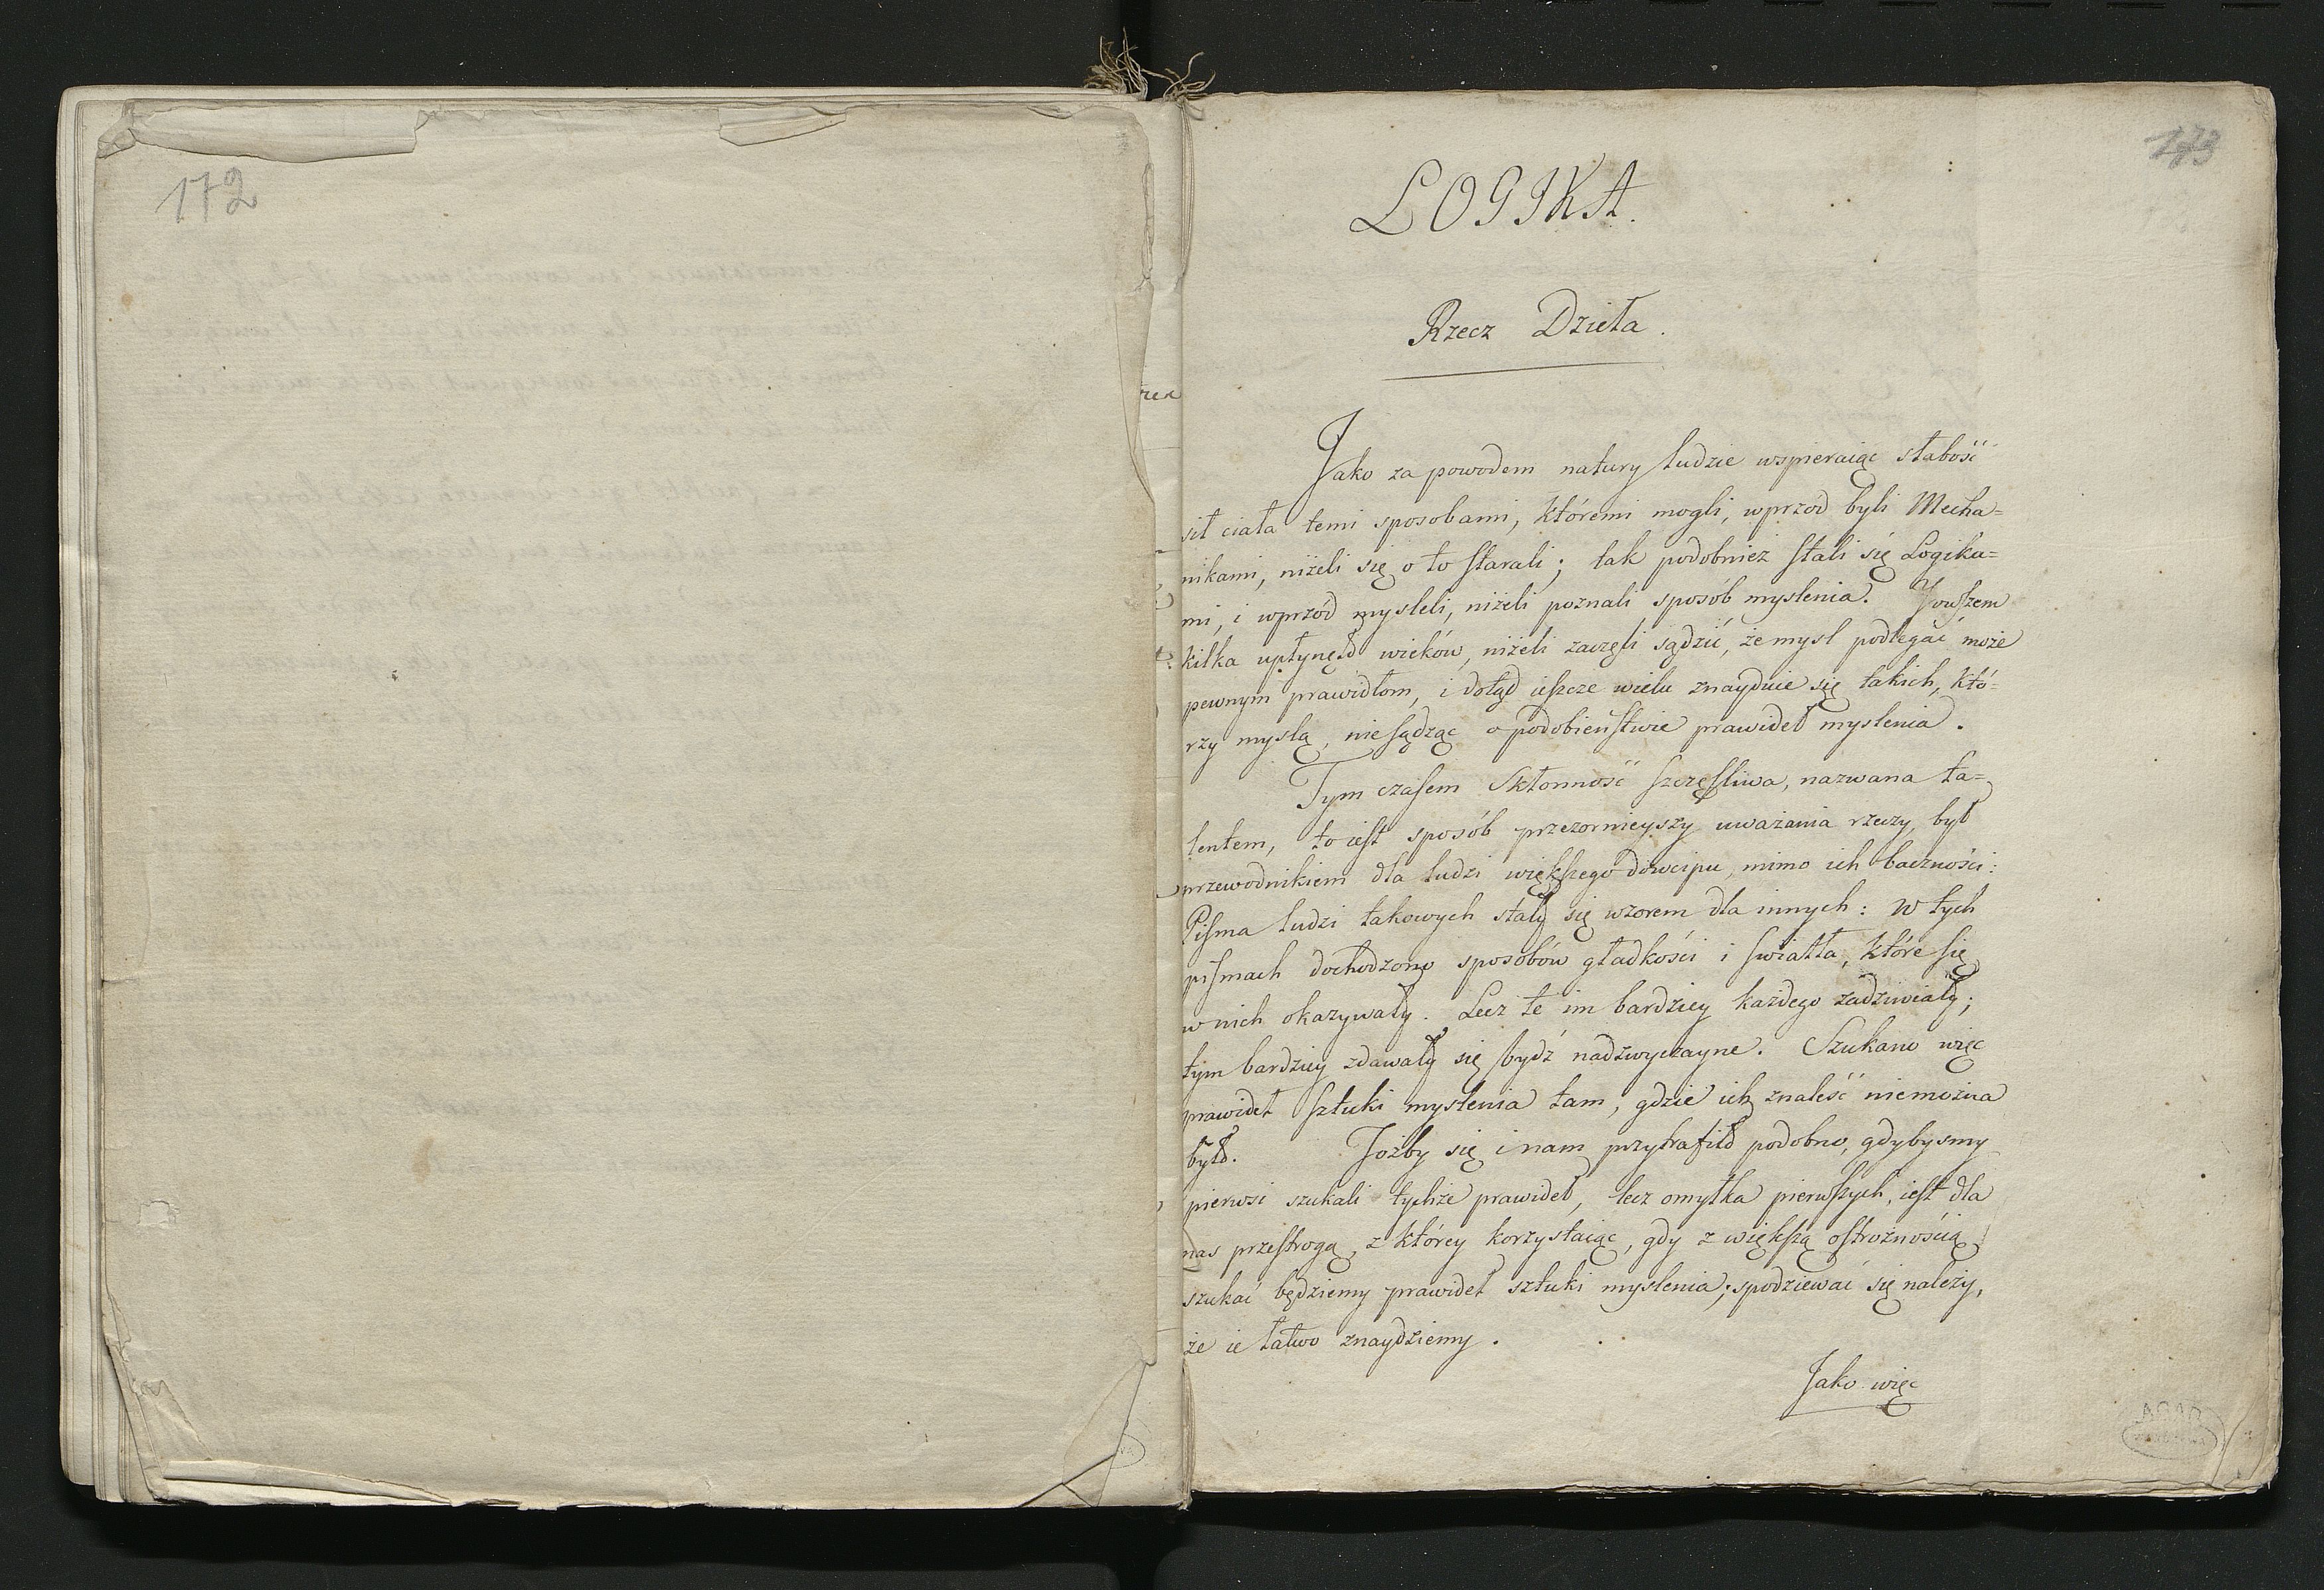 172
173
LOGIKA.
Rzecz Dzieła.
Jako za powodem natury ludzie wspieraiąc słabość
sił ciała temi sposobami, któremi mogli, wprzód byli Mecha=
nikami, niżeli się o to starali; tak podobnież stali się Logika=
mi, i wprzód mysleli, niżeli poznali sposób myslenia. Jowszem
kilka upłynęło wieków, niżeli zaczęli sądzić, że mysl podlegać może
pewnym prawidłom, i dotąd ieszcze wielu znayduie się takich, któ=
rzy myslą, niesądząc o podobieństwie prawideł myslenia.
Tym czasem Skłonność szczęsliwa, nazwana ta=
lentem, to iest sposób przezornieyszy uważania rzeczy, był
przewodnikiem dla ludzi większego dowcipu, mimo ich baczności:
Pisma ludzi takowych stały się wzorem dla innych: W tych
pismach dochodzono sposobów gładkości i swiatła, które się
w nich okazywały. Lecz te im bardziey każdego zadziwiały;
tym bardziey zdawały się bydź nadzwyczayne. Szukano więc
prawideł sztuki myslenia tam, gdzie ich znaleść niemożna
było. Tożby się i nam przytrafiło podobno, gdybysmy
pierwsi szukali tychże prawideł, lecz omyłka pierwszych, iest dla
nas przestrogą, z którey korzystaiąc, gdy z większą ostrożnością
szukać będziemy prawideł sztuki myslenia; spodziewać się należy,
że ie łatwo znaydziemy.
Jako więc
AGAD